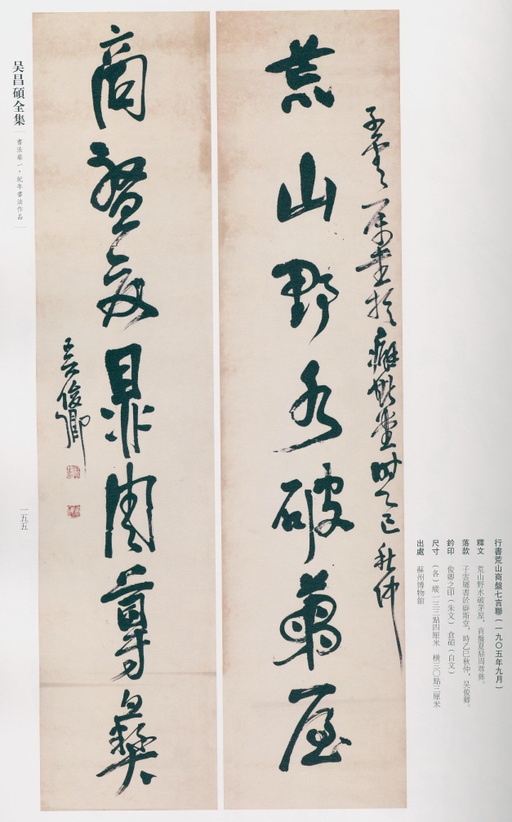 行書荒山商盤七言聯(一九〇五年九月)
釋文 荒山野水破茅屋,商盤夏鼎周尊彝。
落款 子雲屬書於癖斯堂,時乙巳秋仲,吳俊卿。
鈐印 俊卿之印(朱文) 倉碩(白文)
尺寸 (各)縱一三三點四厘米 橫三〇點三厘米
出處 蘇州博物館
子雲屬書於癖斯堂時乙巳秋仲
荒山野水破茅屋
商盤夏鼎周尊彝
吳俊卿
吴昌碩全集
書法卷一·紀年書法作品
一五五